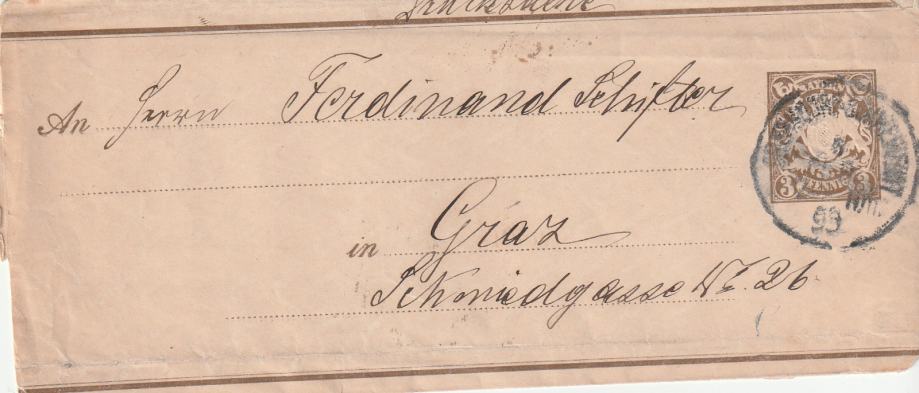 Drucksache
An Herrn Ferdinand Schifter
in Graz
Schmiedgasse N° 26
BAYERN
3 PFENNIG 3
NM.
93